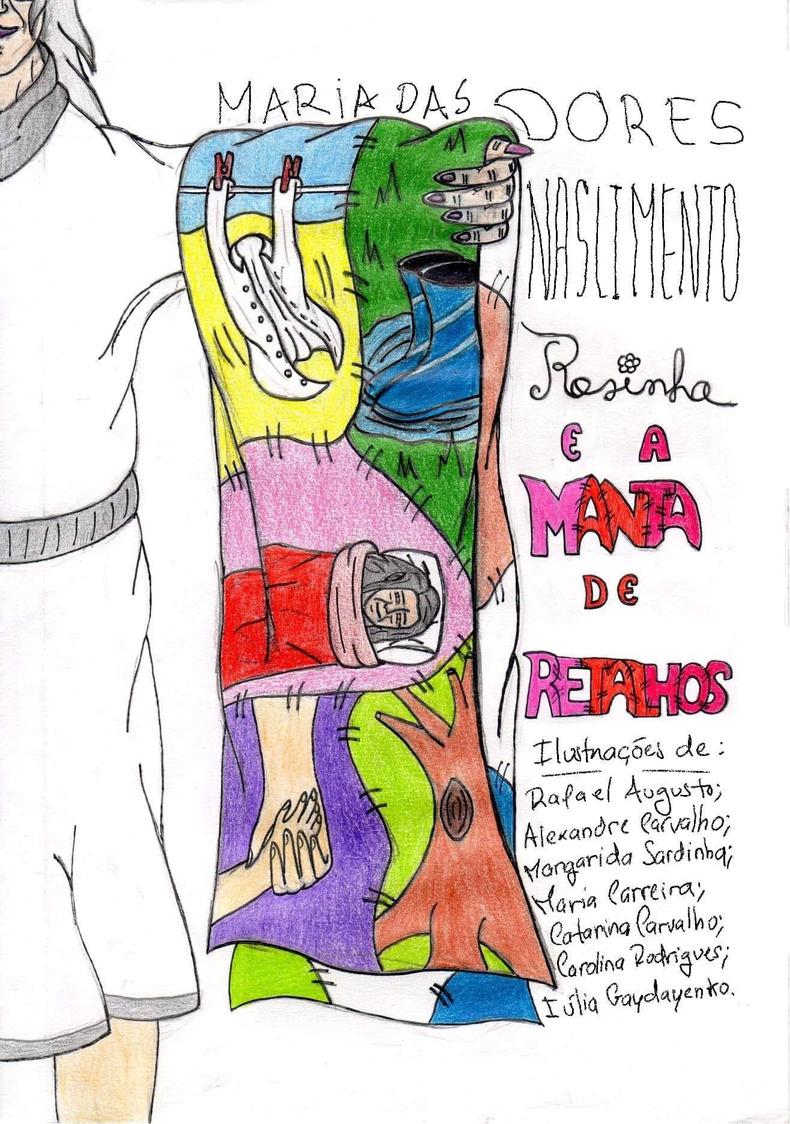 MARIA DAS DORES
NASCIMENTO
Rosinha
E A
MANTA
DE
RETALHOS
Ilustrações de:
Rafael Augusto;
Alexandre Carvalho;
Margarida Sardinha;
Maria Carreira;
Catarina Carvalho;
Carolina Rodrigues;
Iúlia Gaydayenko.